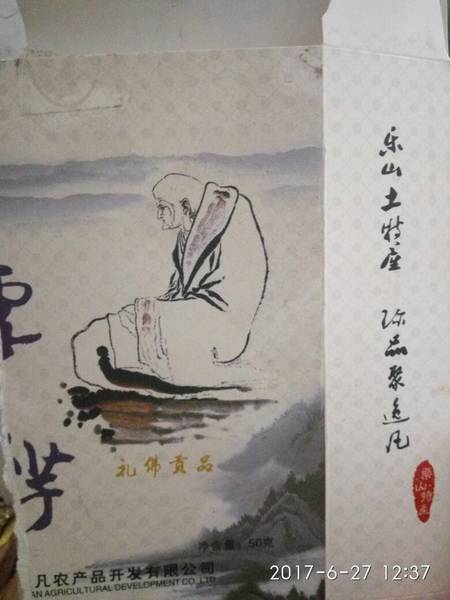 乐山土特产 珍品聚逸凡
礼佛贡品
乐山特产
净含量：50克
凡农产品开发有限公司
AN AGRICULTURAL DEVELOPMENT CO.,LTD
2017-6-27 12:37